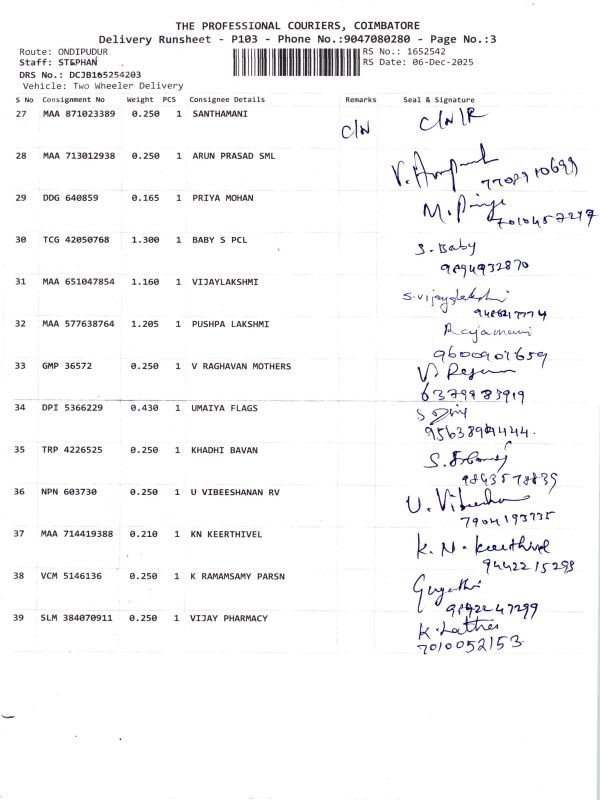 THE PROFESSIONAL COURIERS, COIMBATORE
Delivery Runsheet - P103 - Phone No.:9047080280 - Page No.:3
Route: ONDIPUDUR RS No.: 1652542
Staff: STEPHAN RS Date: 06-Dec-2025
DRS No.: DCJB165254203
Vehicle: Two Wheeler Delivery
S No Consignment No Weight PCS Consignee Details Remarks Seal & Signature
27 MAA 871023389 0.250 1 SANTHAMANI C/N C/N/R
28 MAA 713012938 0.250 1 ARUN PRASAD SML
29 DDG 640859 0.165 1 PRIYA MOHAN
30 TCG 42050768 1.300 1 BABY S PCL S. Baby
9894932870
31 MAA 651047854 1.160 1 VIJAYLAKSHMI S. vijayalakshmi
32 MAA 577638764 1.205 1 PUSHPA LAKSHMI Rajamani
9600901659
33 GMP 36572 0.250 1 V RAGHAVAN MOTHERS
6379983919
34 DPI 5366229 0.430 1 UMAIYA FLAGS
35 TRP 4226525 0.250 1 KHADHI BAVAN
9843578839
36 NPN 603730 0.250 1 U VIBEESHANAN RV
7904193735
37 MAA 714419388 0.210 1 KN KEERTHIVEL K. N. Keerthivel
9442215299
38 VCM 5146136 0.250 1 K RAMAMSAMY PARSN
39 SLM 384070911 0.250 1 VIJAY PHARMACY K. Latha
7010052153